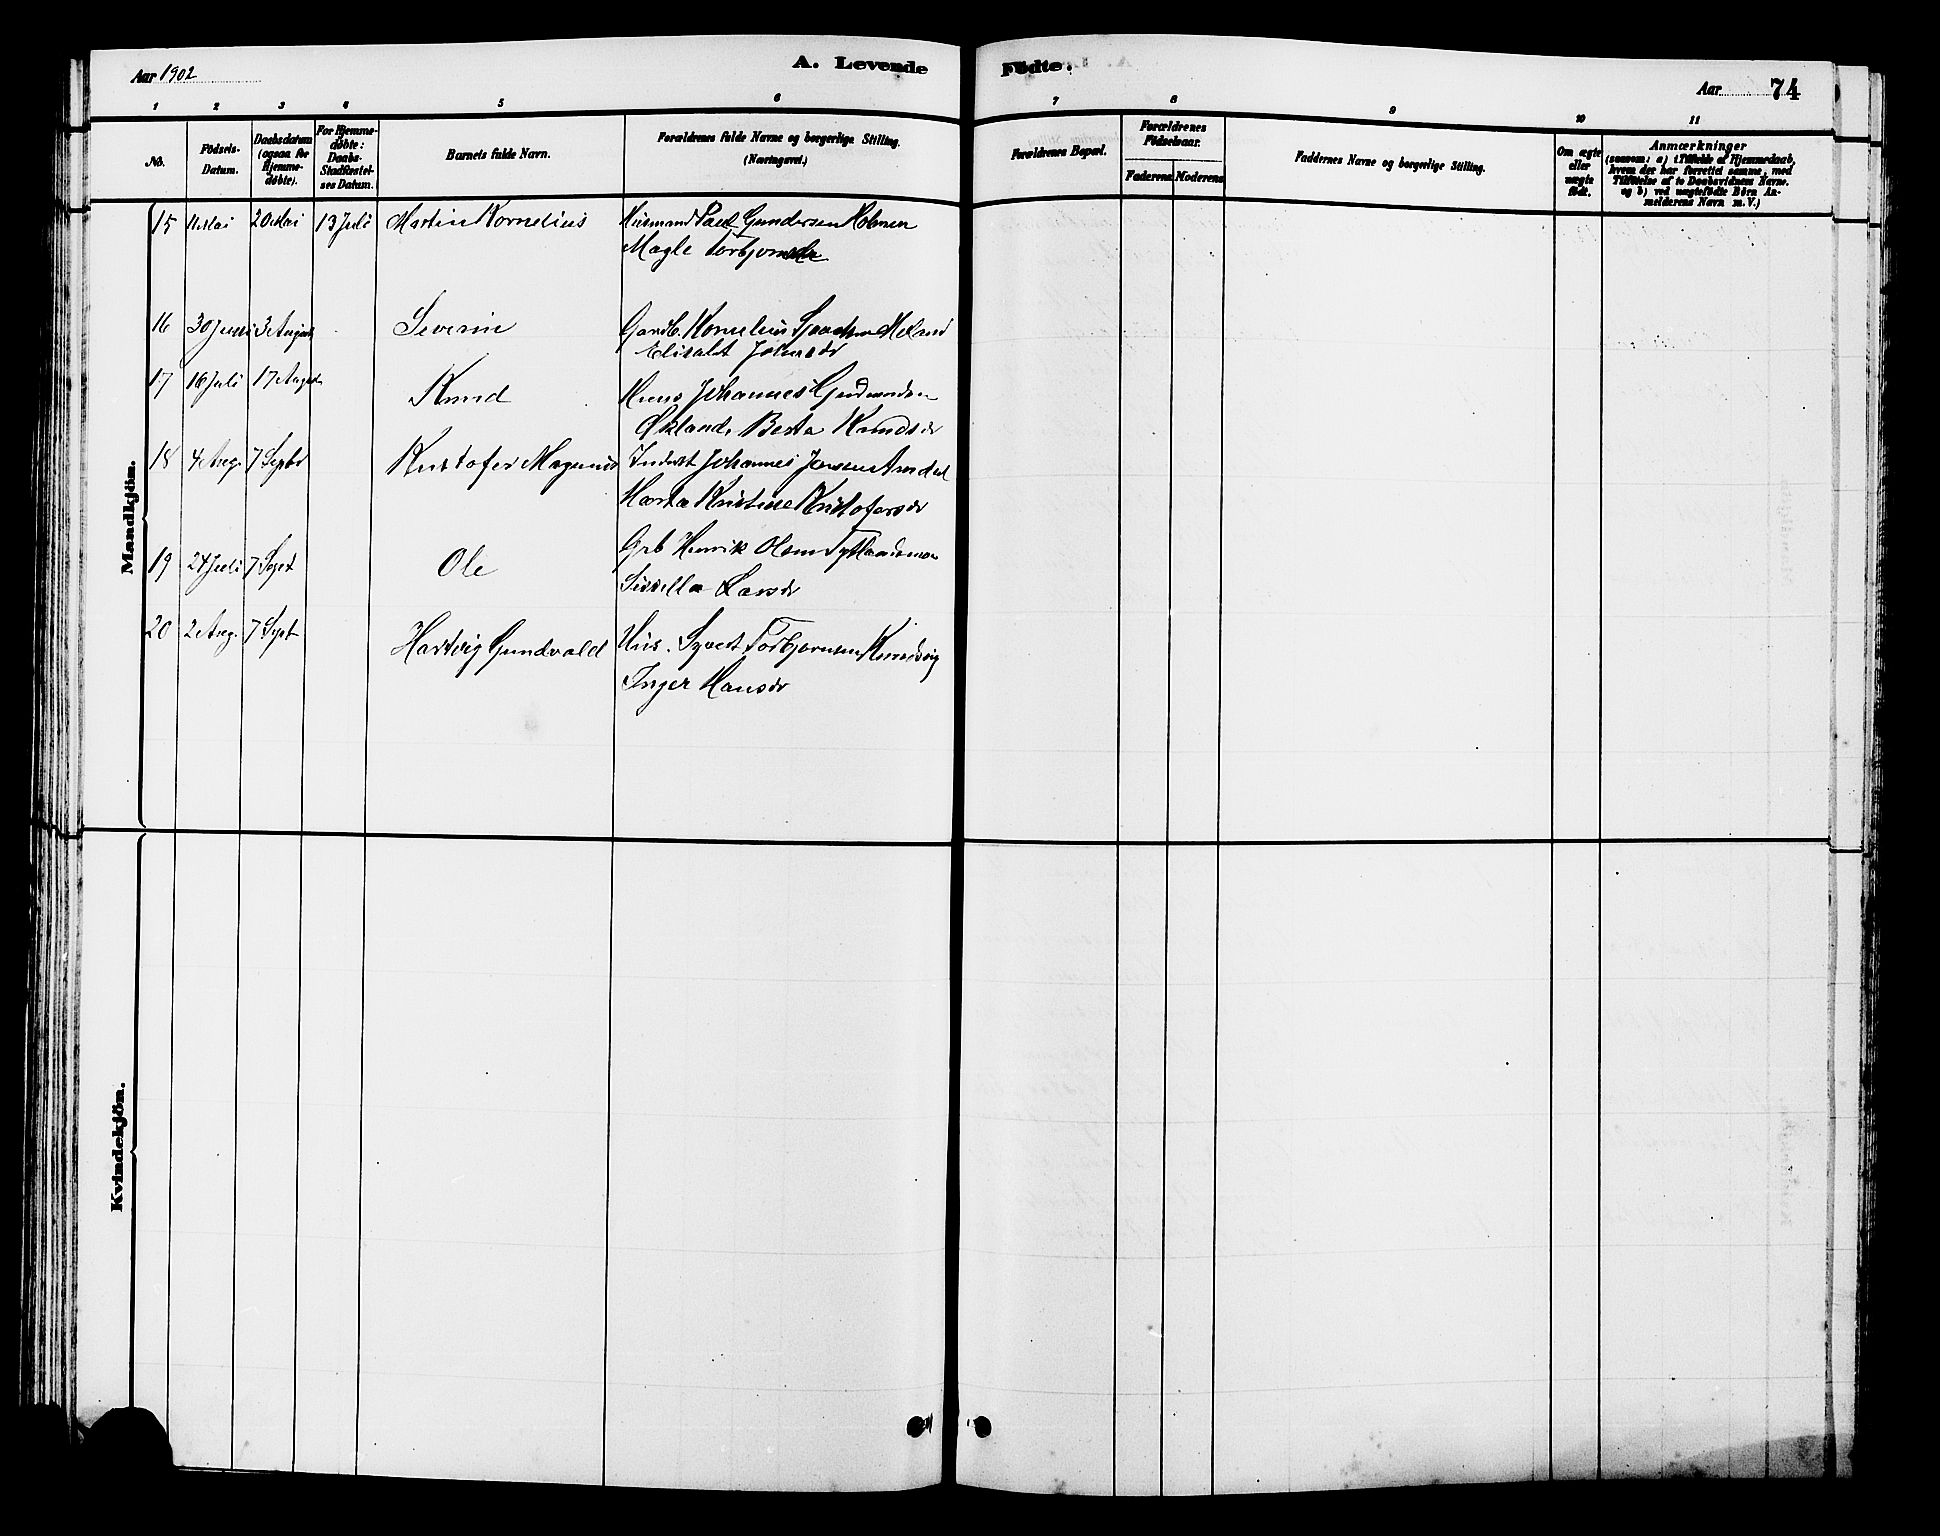 Aar 1902
A. Levende Fødte.
Aar 74
1 2 3 4 5 6 7 8 9 10 11
No.
Födsels-
Datum.
Daabsdatum
(ogsaa for
Hjemme-
døbte).
For Hjemme-
døbte:
Daabs-
Stadfæstel-
ses Datum.
Barnets fulde Navn.
Forældrenes fulde Navne og borgerlige Stilling.
(Næringsvei.)
Forældrenes Bopæl.
Forældrenes
Födselsaar.
Faderens Moderens
Faddernes Navne og borgerlige Stilling.
Om ægte
eller
uægte
født.
Anmærkninger
(saasom: a) i Tilfælde af Hjemmedaab,
hvem der har forrettet samme, med
Tilføielse af to Daabsvidners Navne,
og b) ved uægtefødte Børn An-
melderens Navn m. V.)
Mandkjön.
15 11 Mai 20 Mai 13 Juli Martin Kornelius Husmand Paul Gundersen Holmen
Magle Torbjornsdr
16 30 Juni 3 August Severin Gardb. Kornelius Meland
Elisabet Johnsdr
17 16 Juli 17 August Knud Huus Johannes Gudmundsen
Økland, Berta Knudsdr
18 4 Aug. 7 Septbr Kristofer Magnus Inderst Johannes Jensen Arndal
Marta Kristine Kristofersdr
19 24 Juli 7 Sept Ole Grb Henrik Olsen Tytlandsmo
Sissella Larsdr
20 2 Aug. 7 Sept Hartvig Gundvald Hus. Syvert Torbjornsen Knudsvig
Inger Hansdr
Kvindekjön.